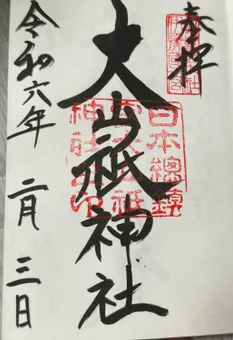 奉拝
大山祇神社
日本總鎮
守大山祇
神社印
令和六年 二月 三日